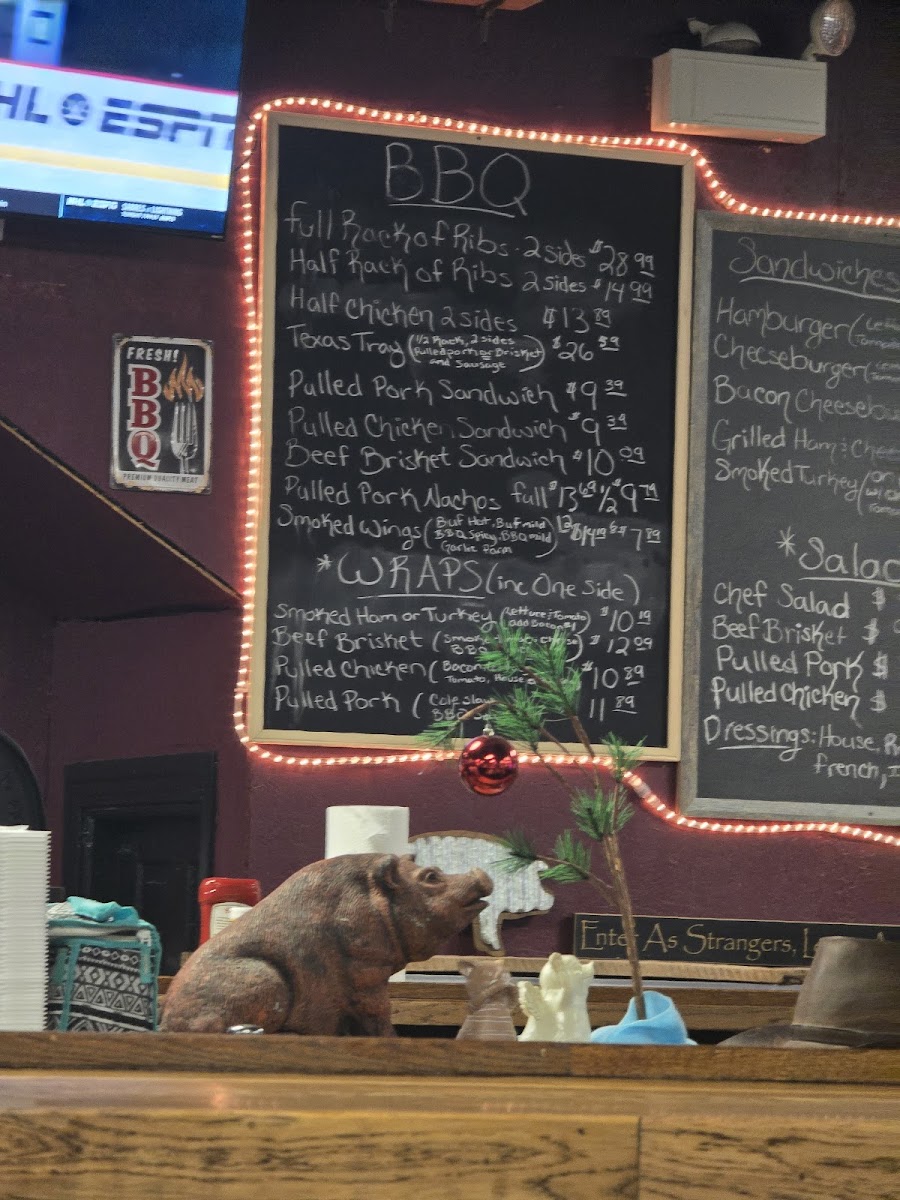 HL ESPN
NHL ESPN SHARKS LIGHTNING
FRESH!
BBQ
PREMIUM QUALITY MEAT
BBQ
Full Rack of Ribs - 2 sides $28 99
Half Rack of Ribs 2 sides $14 99
Half Chicken 2 sides $13 89
Texas Tray (1/2 Rack, 2 sides $26 59
Pulled pork or Brisket
and Sausage)
Pulled Pork Sandwich $9 39
Pulled Chicken Sandwich $9 39
Beef Brisket Sandwich $10 09
Pulled Pork Nachos full $13 69 1/2 $9 79
Smoked Wings (Buf Hot, Buf mild
BBQ Spicy, BBQ mild
Garlic Parm) 12 $14 19 $7 89
*WRAPS (inc One Side)
Smoked Ham or Turkey (Lettuce, Tomato $10 19
add Bacon $1)
Beef Brisket ( $12 09
BBQ
Pulled Chicken (Bacon $10 89
Tomato, House
Pulled Pork (Cole Slaw 11 89
BBQ
Sandwiches
Hamburger (
Cheeseburger (
Bacon Cheesebu
Grilled Ham & Chee
Smoked Turkey (
*Salad
Chef Salad $
Beef Brisket $
Pulled Pork $
Pulled Chicken $
Dressings: House, R
French,
Enter As Strangers, L